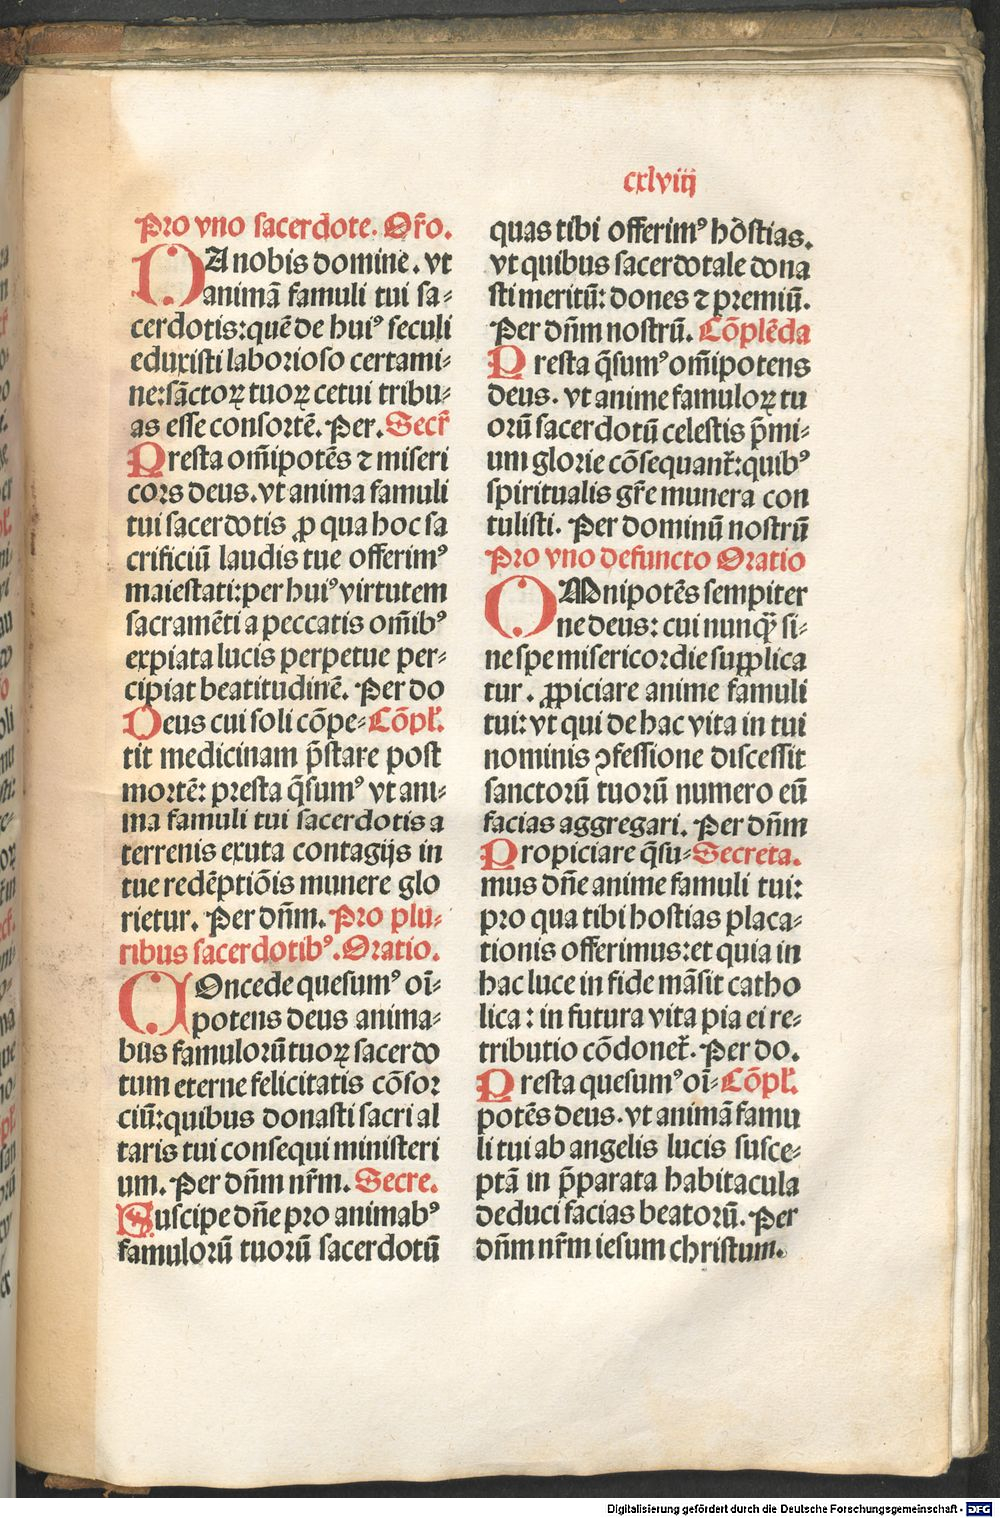 cxlviij
Pro vno sacerdote. Or̃o.
DA nobis domine. vt
animã famuli tui sa⸗
cerdotis: quẽ de huiꝰ seculi
eduxisti laborioso certami⸗
ne: sãctoꝝ tuoꝝ cetui tribu⸗
as esse consortẽ. Per. Secr̃
Presta om̃ipotẽs ⁊ miseri
cors deus. vt anima famuli
tui sacerdotis ꝓ qua hoc sa
crificiũ laudis tue offerimꝰ
maiestati: per huiꝰ virtutem
sacramẽti a peccatis om̃ibꝰ
expiata lucis perpetue per⸗
cipiat beatitudinẽ. Per do
Deus cui soli cõpe⸗ Cõpl̃.
tit medicinam p̃stare post
mortẽ: presta q̃sumꝰ vt ani⸗
ma famuli tui sacerdotis a
terrenis exuta contagijs in
tue redẽptiõis munere glo
rietur. Per dñm. Pro plu⸗
ribus sacerdotibꝰ. Oratio.
COncede quesumꝰ oĩ⸗
potens deus anima⸗
bus famulorũ tuoꝝ sacerdo
tum eterne felicitatis cõsor
ciũ: quibus donasti sacri al
taris tui consequi ministeri
um. Per dñm nr̃m. Secre.
Suscipe dñe pro animabꝰ
famulorũ tuorũ sacerdotũ
quas tibi offerimꝰ hõstias.
vt quibus sacerdotale dona
sti meritũ: dones ⁊ premiũ.
Per dñm nostrũ. Cõplẽda
Presta q̃sumꝰ om̃ipotens
deus. vt anime famuloꝝ tu
orũ sacerdotũ celestis p̃mi⸗
um glorie cõsequant̃: quibꝰ
spiritualis gr̃e munera con
tulisti. Per dominũ nostrũ
Pro vno defuncto Oratio
OMnipotẽs sempiter
ne deus: cui nunqꝫ̃ si⸗
ne spe misericordie supplica
tur. ꝓpiciare anime famuli
tui: vt qui de hac vita in tui
nominis ꝯfessione discessit
sanctorũ tuorũ numero eũ
facias aggregari. Per dñm
Propiciare q̃su⸗ Secreta.
mus dñe anime famuli tui:
pro qua tibi hostias placa⸗
tionis offerimus: et quia in
hac luce in fide mãsit catho
lica: in futura vita pia ei re⸗
tributio cõdonet̃. Per do.
Presta quesumꝰ oĩ⸗ Cõpl̃.
potẽs deus. vt animã famu
li tui ab angelis lucis susce⸗
ptã in p̃parata habitacula
deduci facias beatorũ. Per
dñm nr̃m iesum christum.
Digitalisierung gefördert durch die Deutsche Forschungsgemeinschaft - DFG